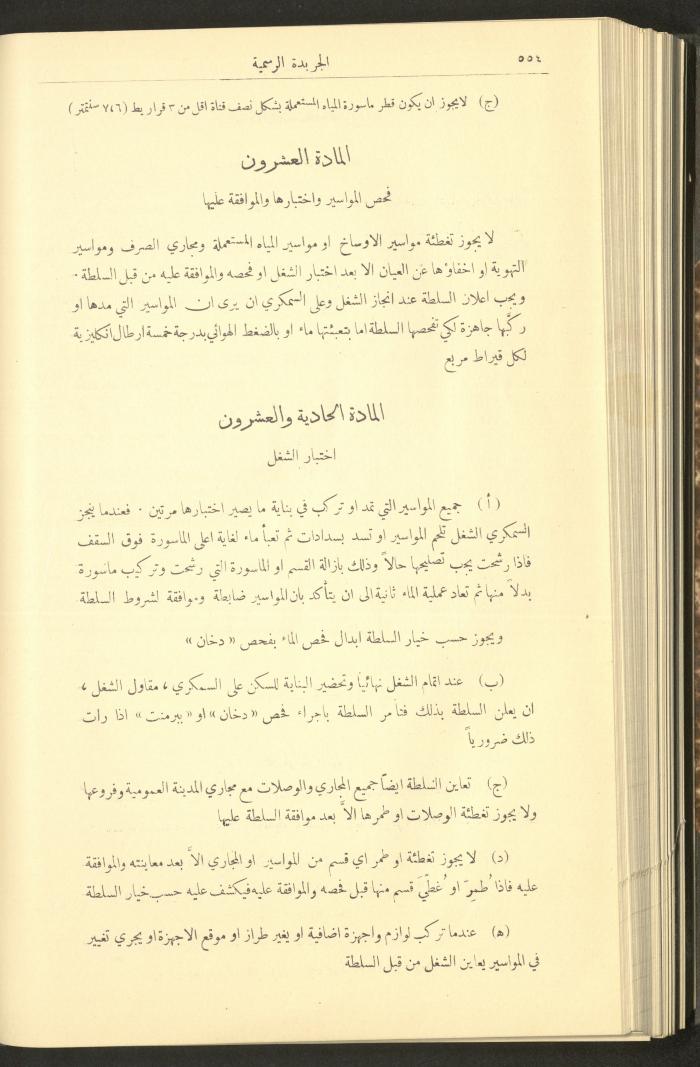 ٥٥٤
الجريدة الرسمية
(ج) لايجوز ان يكون قطر ماسورة المياه المستعملة بشكل نصف قناة اقل من ٣ قراريط (٧٤٦ سنتمتر)
المادة العشرون
فحص المواسير واختبارها والموافقة عليها
لا يجوز تغطئة مواسير الاوساخ او مواسير المياه المستعملة ومجاري الصرف ومواسير
التهوية او اخفاؤها عن العيان الا بعد اختبار الشغل او فحصه والموافقة عليه من قبل السلطة ٠
ويجب اعلان السلطة عند انجاز الشغل وعلى السمكري ان يرى ان المواسير التي مدها او
ركَّبها جاهزة لكي تفحصها السلطة اما بتعبئتها ماء او بالضغط الهوائي بدرجة خمسة ارطال انكليزية
لكل قيراط مربع
المادة الحادية والعشرون
اختبار الشغل
(أ) جميع المواسير التي تمد او تركب في بناية ما يصير اختبارها مرتين ٠ فعندما ينجز
السمكري الشغل تلحم المواسير او تسد بسدادات ثم تعبأ ماء لغاية اعلى الماسورة فوق السقف
فاذا رشحت يجب تصليحها حالاً وذلك بازالة القسم او الماسورة التي رشحت وتركيب ماسورة
بدلاً منها ثم تعاد عملية الماء ثانية الى ان يتأكد بان المواسير ضابطة وموافقة لشروط السلطة
ويجوز حسب خيار السلطة ابدال فحص الماء بفحص « دخان »
(ب) عند اتمام الشغل نهائياً وتحضير البناية للسكن على السمكري ، مقاول الشغل ،
ان يعلن السلطة بذلك فتأمر السلطة باجراء فحص « دخان » او « ببرمنت » اذا رات
ذلك ضرورياً
(ج) تعاين السلطة ايضاً جميع المجاري والوصلات مع مجاري المدينة العمومية وفروعها
ولا يجوز تغطئة الوصلات او طمرها الاَّ بعد موافقة السلطة عليها
(د) لا يجوز تغطئة او طمر اي قسم من المواسير او المجاري الاَّ بعد معاينته والموافقة
عليه فاذا طُمِرَ او غُطّيَ قسم منها قبل فحصه والموافقة عليه فيكشف عليه حسب خيار السلطة
(ه) عندما تركب لوازم واجهزة اضافية او يغير طراز او موقع الاجهزة او يجري تغيير
في المواسير يعاين الشغل من قبل السلطة